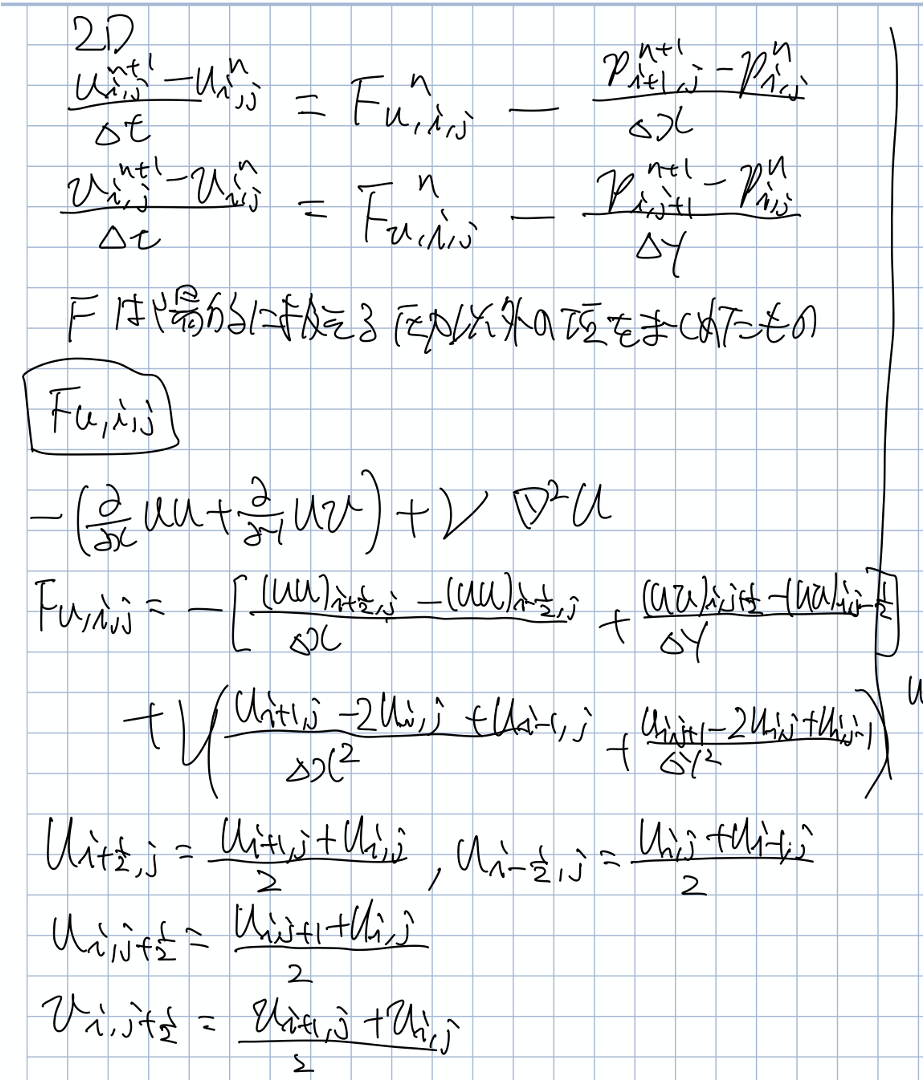 2D
(u_{i,j}^{n+1} - u_{i,j}^n)/Δt = F_{u,i,j}^n - (p_{i+1,j}^{n+1} - p_{i,j}^n)/Δx
(v_{i,j}^{n+1} - v_{i,j}^n)/Δt = F_{v,i,j}^n - (p_{i,j+1}^{n+1} - p_{i,j}^n)/Δy
Fは 圧力以外の項をまとめたもの
F_{u,i,j}
-(∂/∂x uu + ∂/∂y uv) + ν ∇²u
F_{u,i,j} = -[((uu)_{i+1/2,j} - (uu)_{i-1/2,j})/Δx + ((uv)_{i,j+1/2} - (uv)_{i,j-1/2})/Δy]
+ν((u_{i+1,j} - 2u_{i,j} + u_{i-1,j})/Δx² + (u_{i,j+1} - 2u_{i,j} + u_{i,j-1})/Δy²)
u
u_{i+1/2,j} = (u_{i+1,j} + u_{i,j})/2 , u_{i-1/2,j} = (u_{i,j} + u_{i-1,j})/2
u_{i,j+1/2} = (u_{i,j+1} + u_{i,j})/2
v_{i,j+1/2} = (v_{i+1,j} + v_{i,j})/2